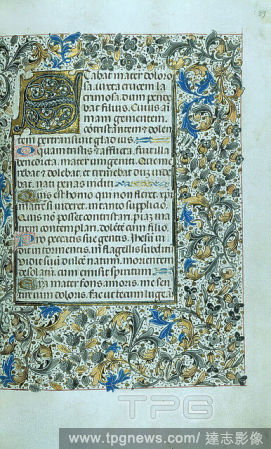 Stabat mater doloro
sa. iuxta crucem la
crimosa. dum pene
debat filius. Cuius ai
mam gementem.
contristantem z dolen
tem pertransiuit gladius.
O quam tristis z afflicta. fuit illa
benedicta. mater unigeniti. Que me
rebat z dolebat. et tremebat du uide
bat. nati penas incliti
Quis est homo qui non fleret. xpi
matre si uideret. in tanto supplicio
Quis no posset contristari. piam ma
trem contemplari. dolete cum filio.
Pro peccatis sue gentis. Jhesu
in tormentis. et flagellis subditu
Vidit suu dulce natum. morientem
desolatu. cum emisit spiritum
Eia mater fons amoris. me sen
tire uim doloris. fac ut tecum lugea.
TPG
www.tpgnews.com / 達志影像